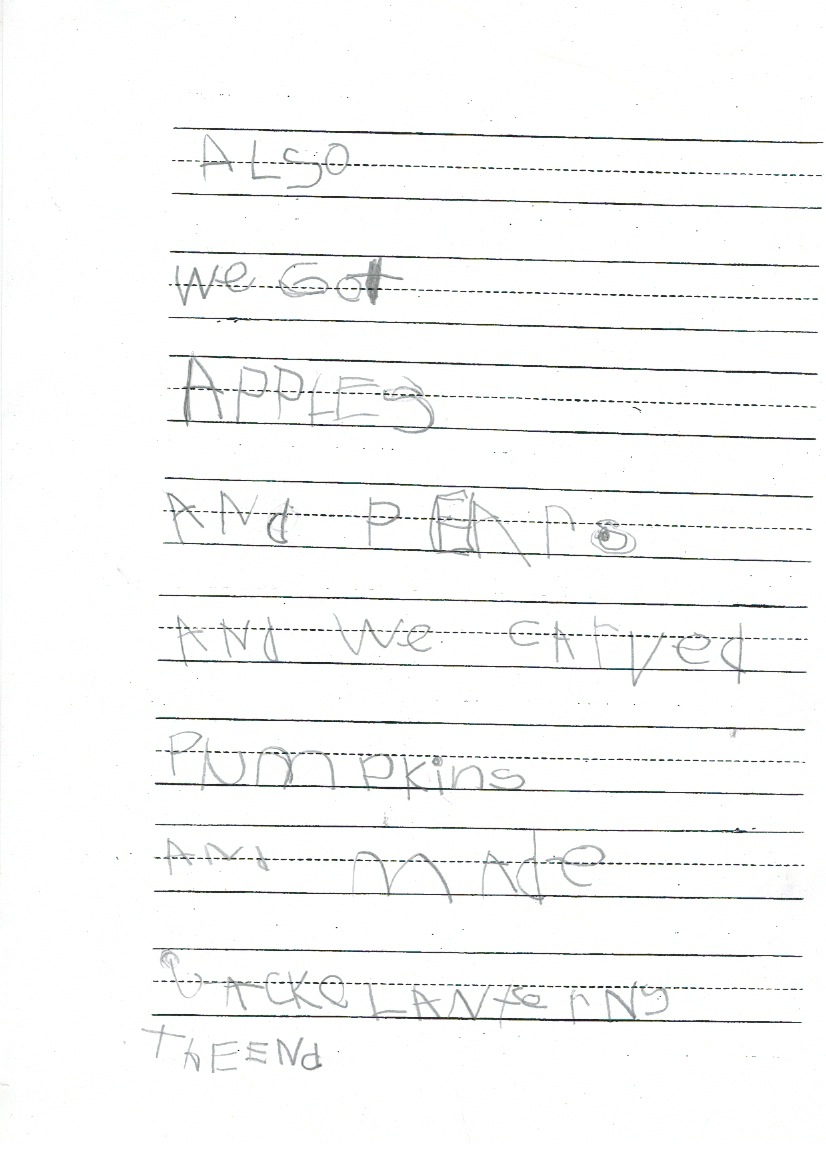 ALSO
We Got
APPLES
ANd PEArs
ANd We CArved
Pumpkins
ANd mAde
JACKO LANterNs
ThE ENd